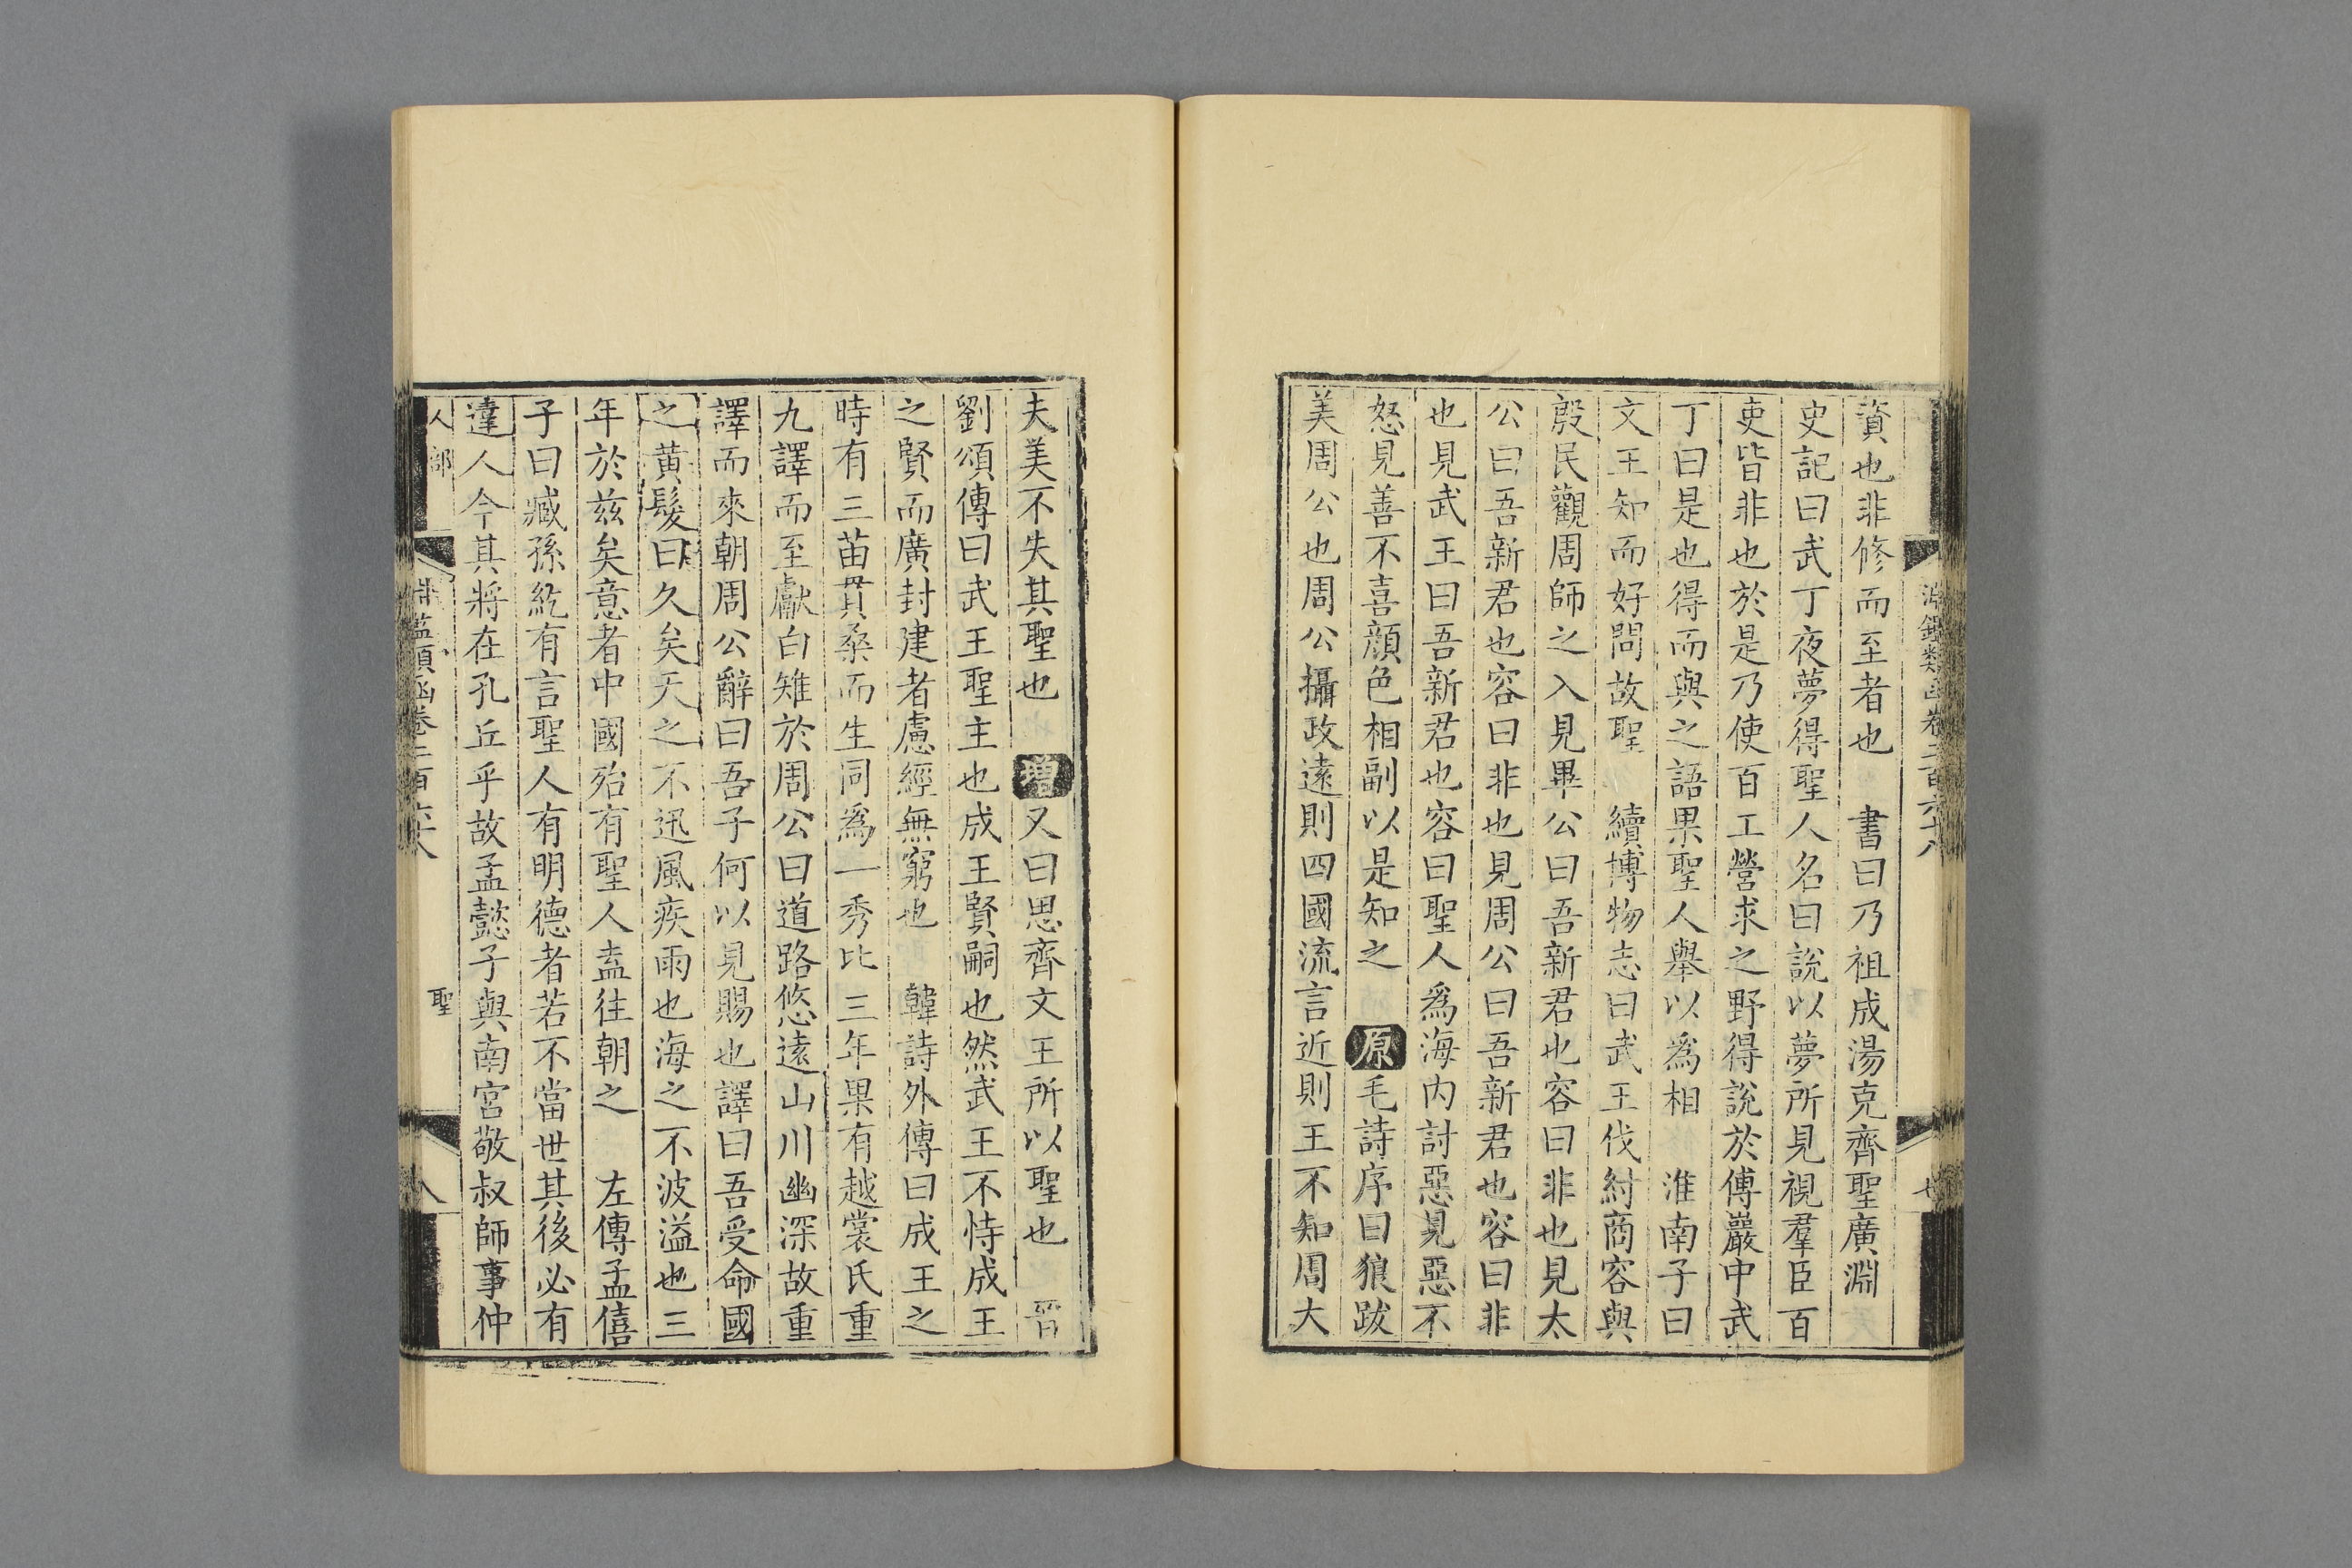 淵鑑類函卷二百六十八
資也非修而至者也　書曰乃祖成湯克齊聖廣淵
史記曰武丁夜夢得聖人名曰說以夢所見視羣臣百
吏皆非也於是乃使百工營求之野得說於傅巖中武
丁曰是也得而與之語果聖人舉以爲相　淮南子曰
文王知而好問故聖　續博物志曰武王伐紂商容與
殷民觀周師之入見畢公曰吾新君也容曰非也見太
公曰吾新君也容曰非也見周公曰吾新君也容曰非
也見武王曰吾新君也容曰聖人爲海内討惡見惡不
怒見善不喜顏色相副以是知之　原毛詩序曰狼跋
美周公也周公攝政遠則四國流言近則王不知周大
夫美不失其聖也　增又曰思齊文王所以聖也　晉
劉頌傳曰武王聖主也成王賢嗣也然武王不恃成王
之賢而廣封建者慮經無窮也　韓詩外傳曰成王之
時有三苗貫桑而生同爲一秀比三年果有越裳氏重
九譯而至獻白雉於周公曰道路悠遠山川幽深故重
譯而來朝周公辭曰吾子何以見賜也譯曰吾受命國
之黃髮曰久矣天之不迅風疾雨也海之不波溢也三
年於兹矣意者中國殆有聖人盍往朝之　左傳孟僖
子曰臧孫紇有言聖人有明德者若不當世其後必有
達人今其將在孔丘乎故孟懿子與南宮敬叔師事仲
人部　淵鑑類函卷二百六十八　聖　八